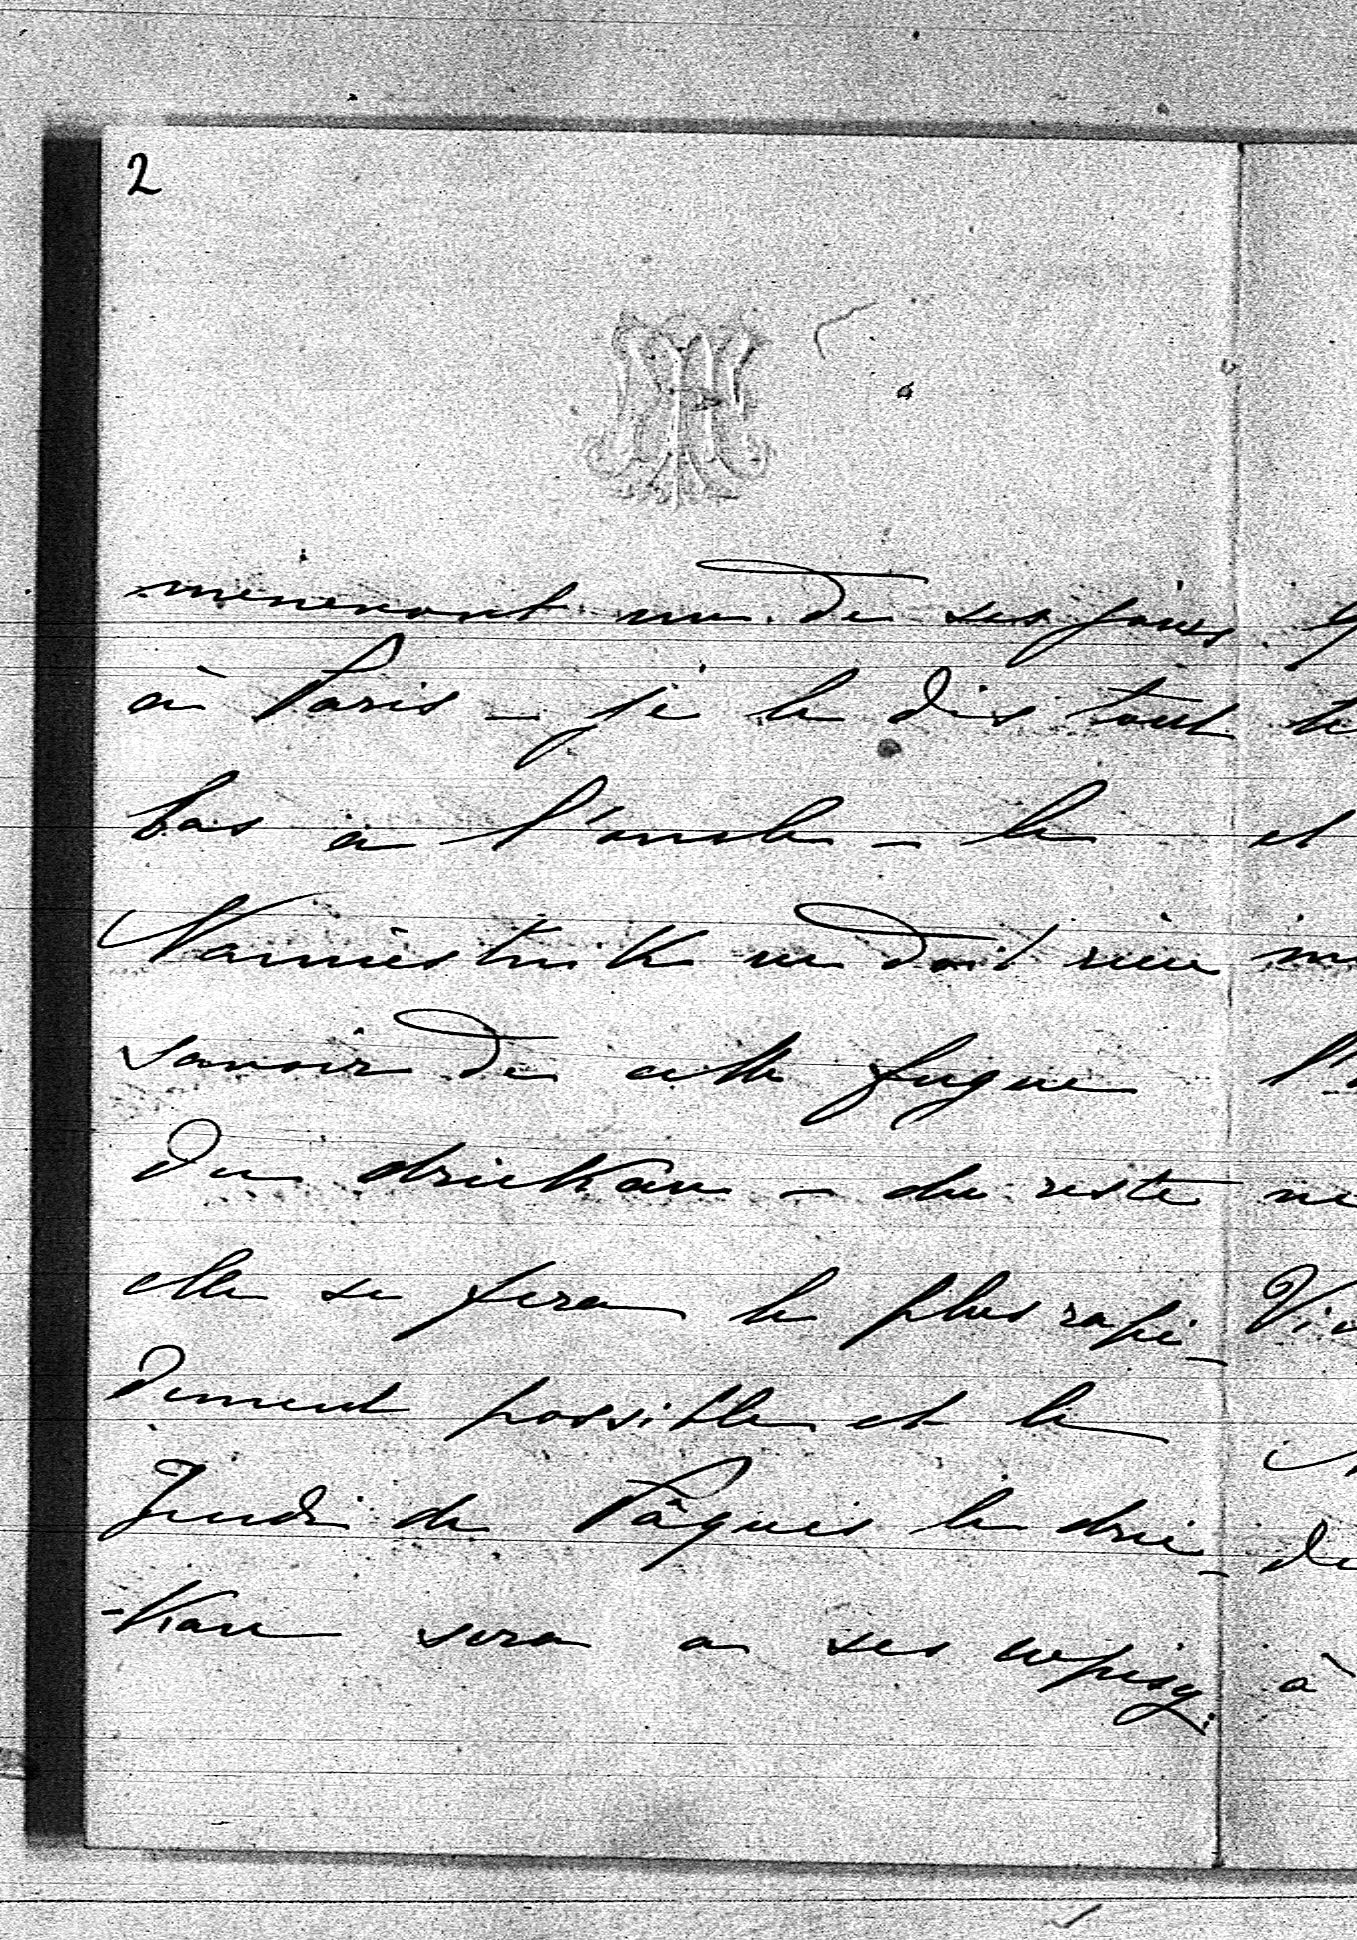 2
mèneront un de ses jours
à Paris – je le dis tout
bas à l'oncle – le
Namiestnik ne doit rien
savoir de cette fugue
du dziekan – du reste
elle se fera le plus rapi-
dement possible et le
Jeudi de Pâques le dzie-
-kan sera a ses wpisy.